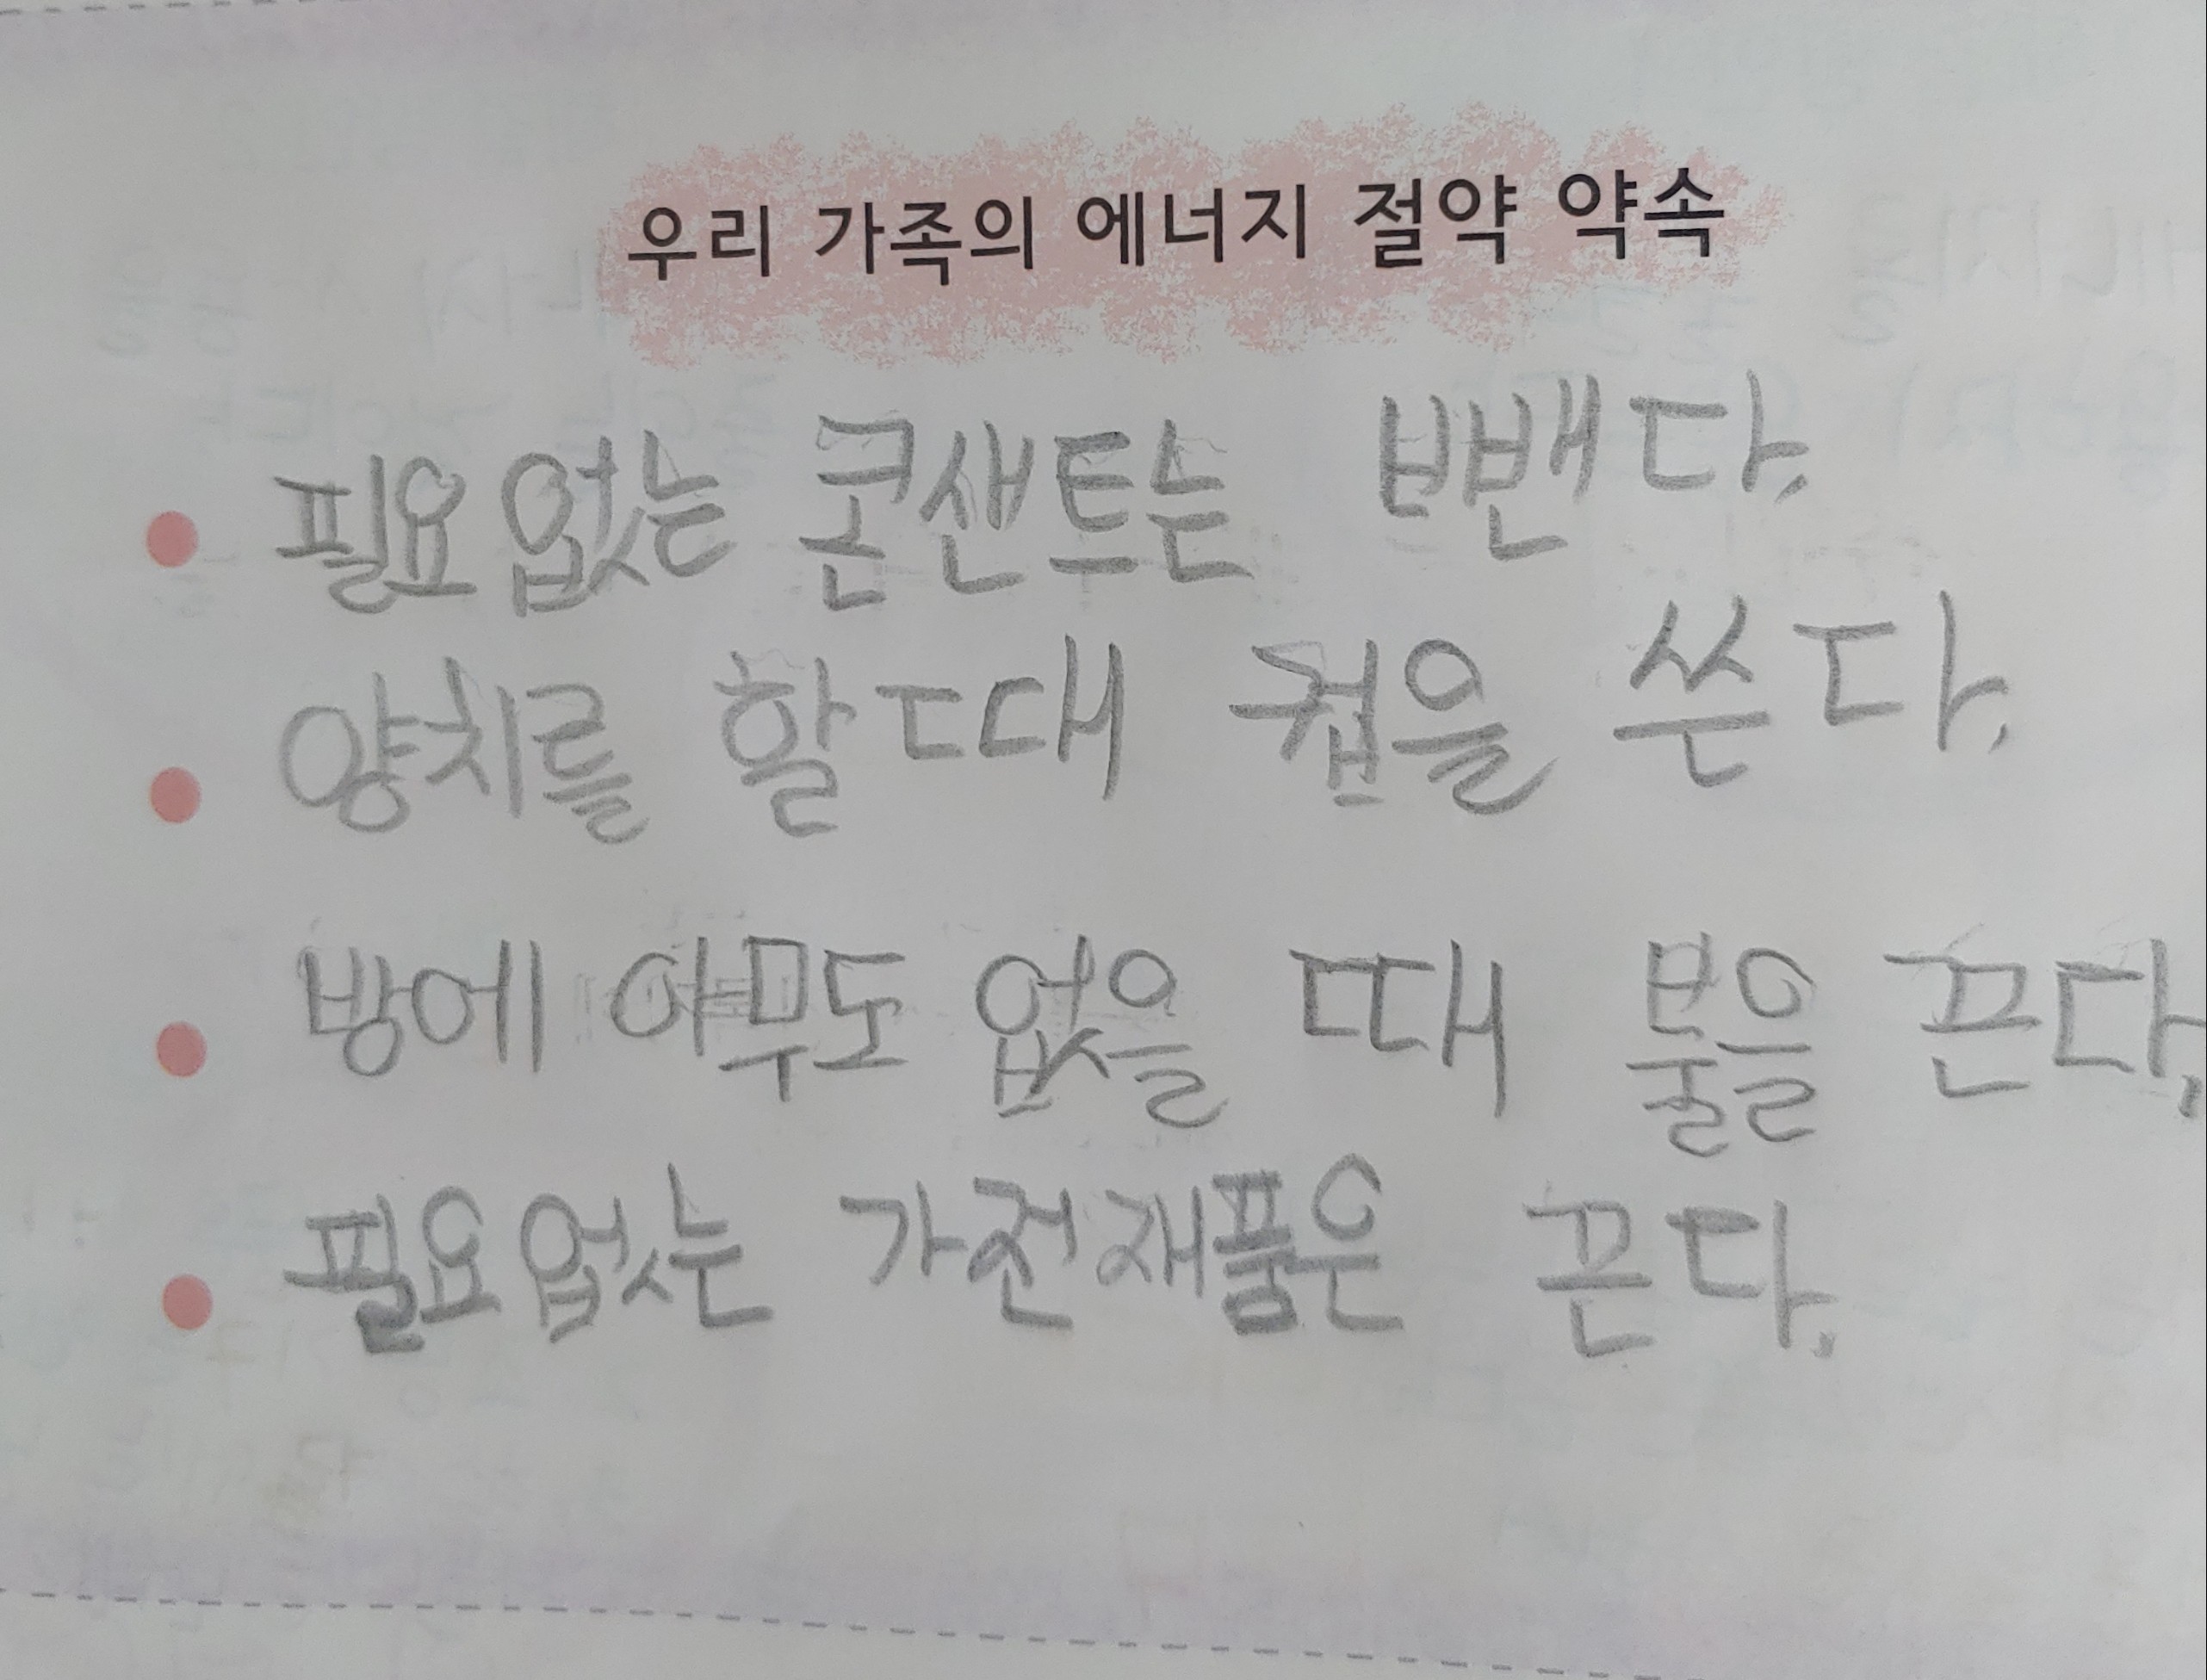 우리 가족의 에너지 절약 약속
필요없는 콘샌트는 뺀다.
양치를 할 때 컵을 쓴다.
방에 아무도 없을 때 불을 끈다.
필요없는 가전재품은 끈다.